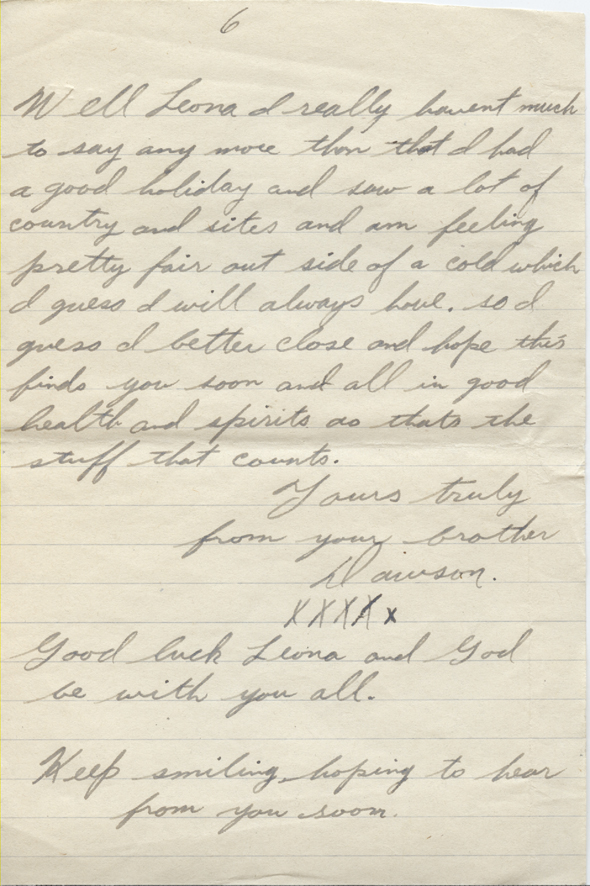 6
Well Leona I really havent much
to say any more than that I had
a good holiday and saw a lot of
country and sites and am feeling
pretty fair out side of a cold which
I guess I will always have. so I
guess I better close and hope this
finds you soon and all in good
health and spirits as thats the
stuff that counts.
Yours truly
from your brother
Dawson.
XXXXx
Good luck Leona and God
be with you all.
Keep smiling, hoping to hear
from you soon.